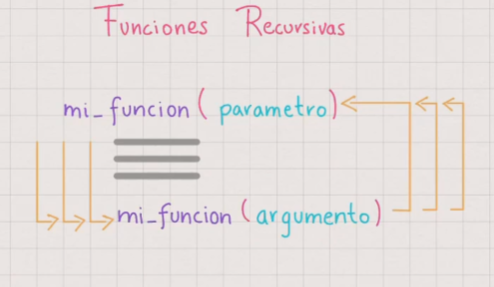 Funciones Recursivas
mi_funcion(parametro)
mi_funcion(argumento)